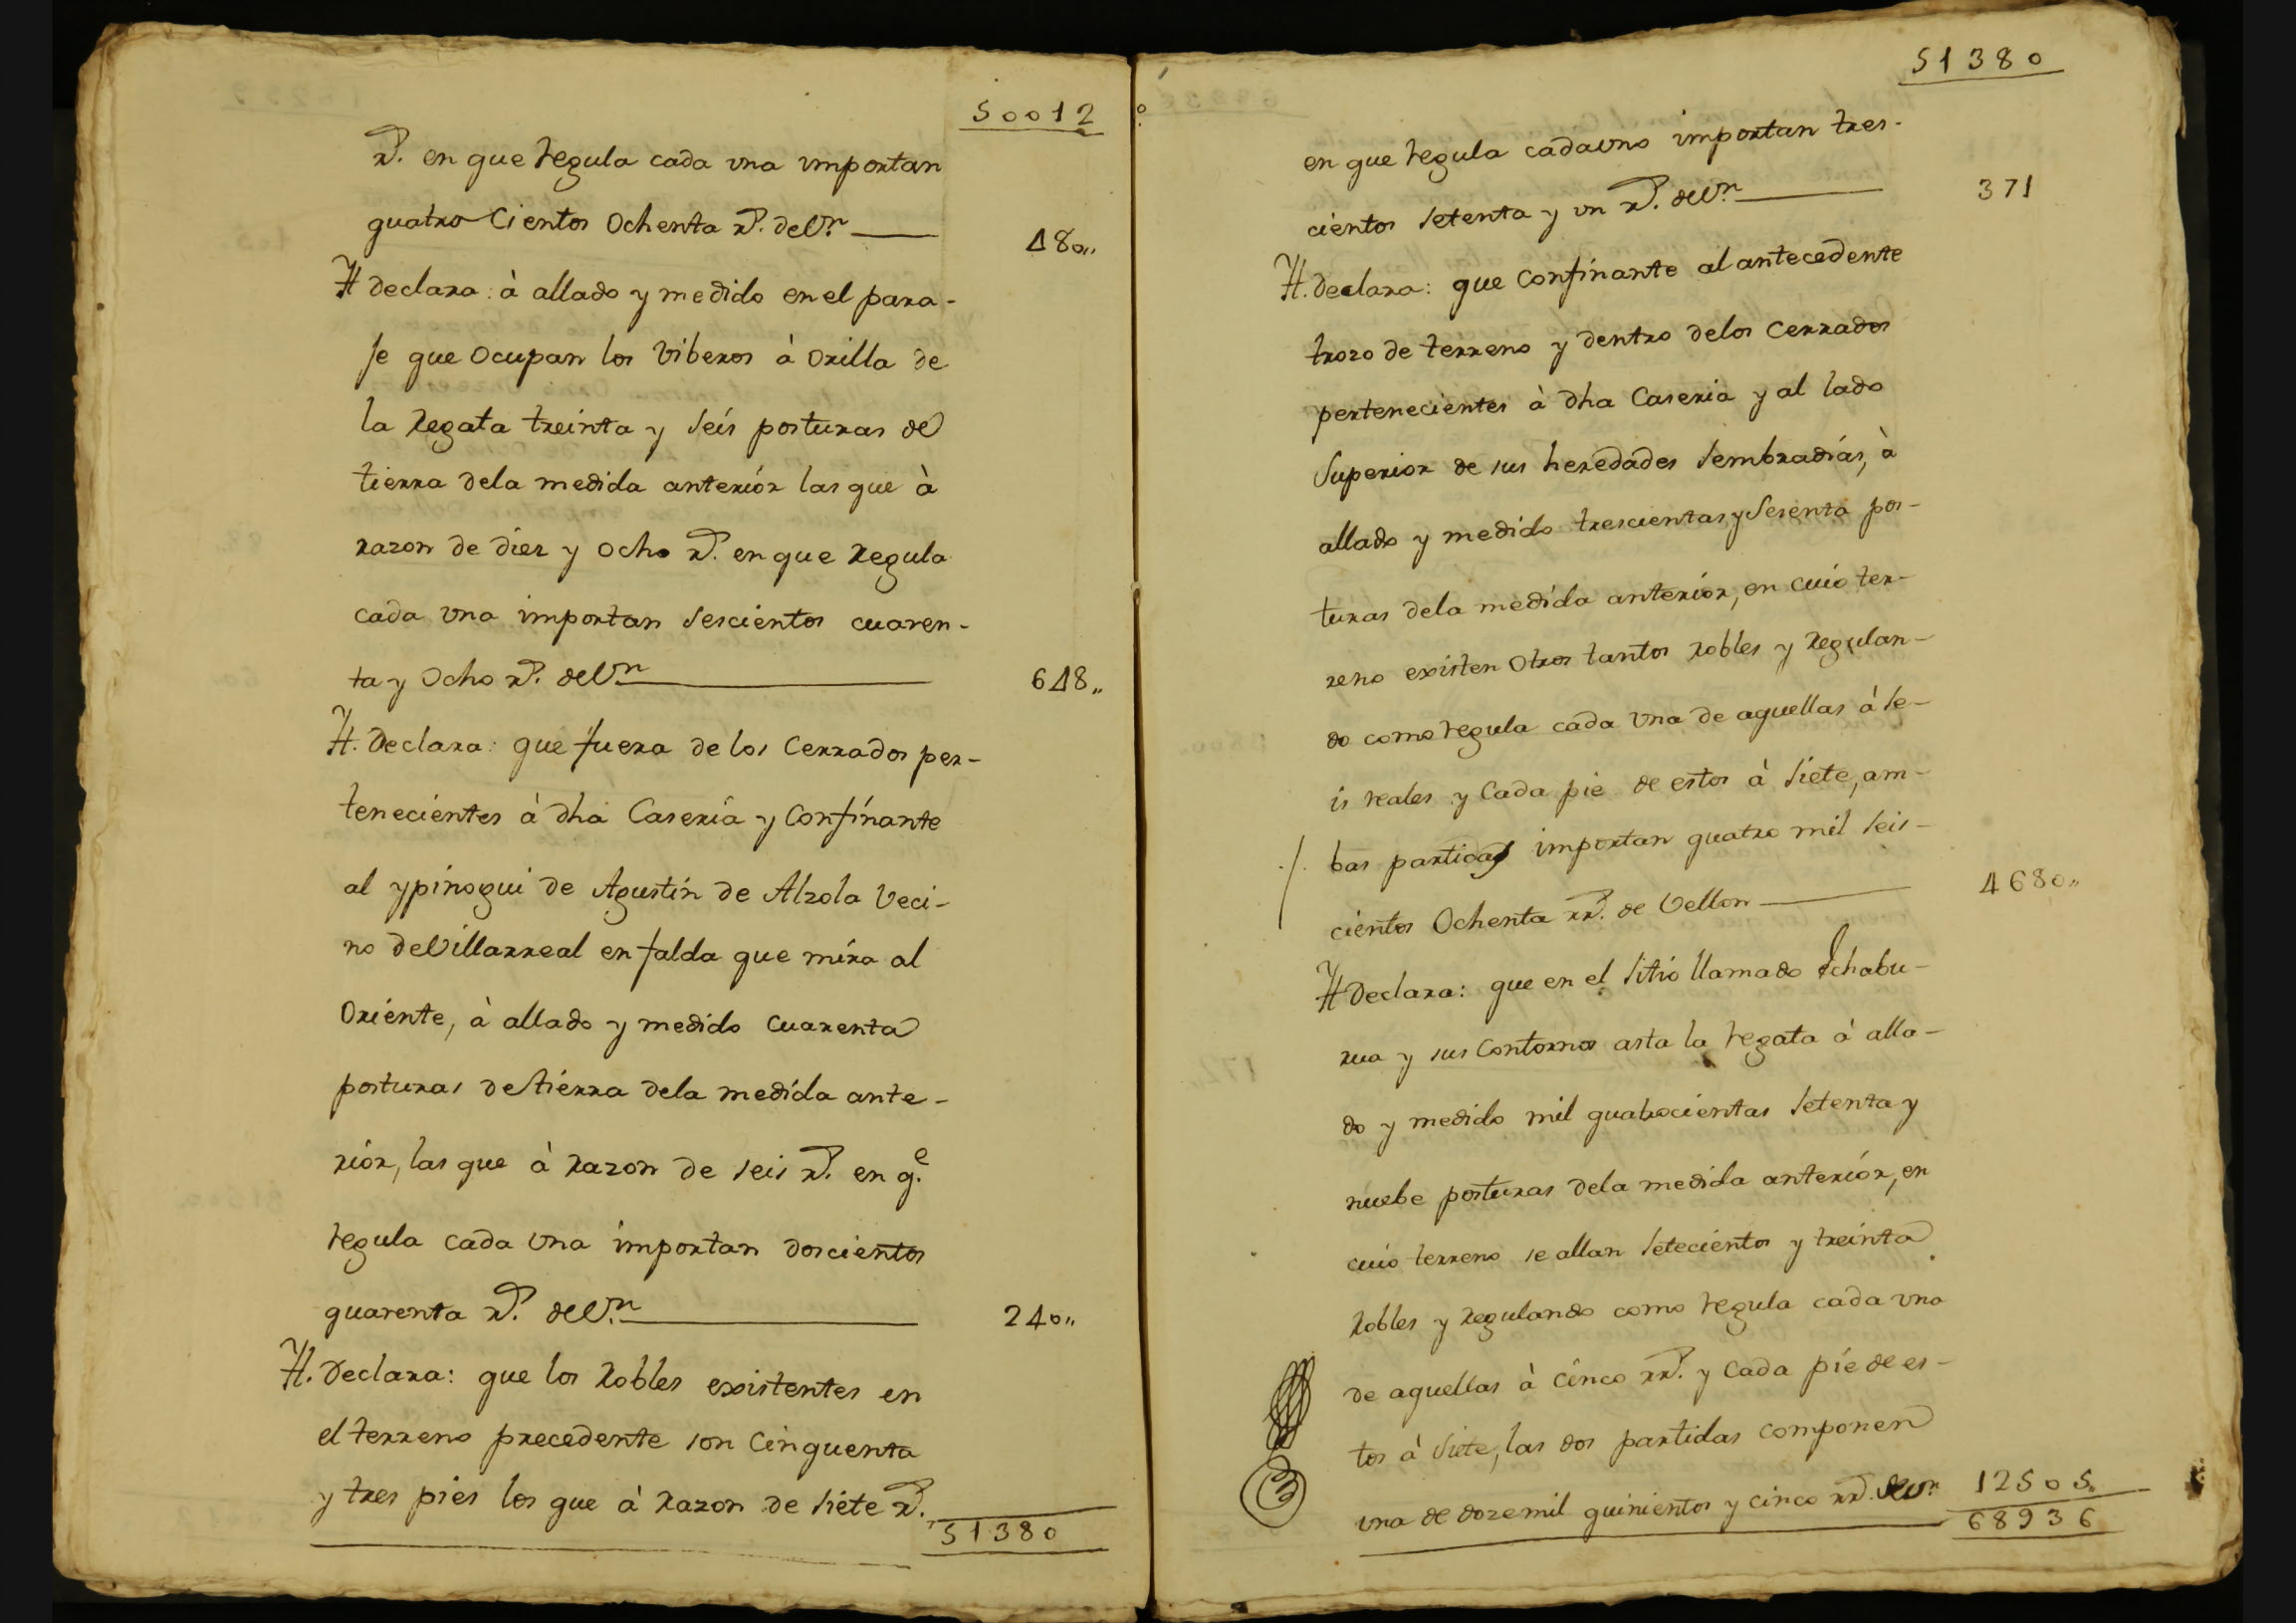 50012
rs. en que regula cada una importan
quatro Cientos Ochenta rs. de Vn.
480,,
Yt. declara: à allado y medido en el para-
je que Ocupan los Viberos à Orilla de
la Regata treinta y seis posturas de
tierra dela medida anteriór las que à
razon de diez y ocho rs. en que Regula
cada una importan sescientos cuaren-
ta y Ocho rs. de Vn.
648,,
Yt. Declara: que fuera de los Cerrados per-
tenecientes à dha Caseria y Confinante
al ypinogui de Agustin de Alzola Veci-
no de Villarreal en falda que mira al
Oriente, à allado y medido Cuarenta
posturas de tierra dela medida ante-
riór, las que à razon de seis rs. en q.e
regula cada una importan doscientos
quarenta rs. de Vn.
240,,
Yt. Declara: que los Robles existentes en
el terreno precedente son Cinquenta
y tres pies los que à razon de siete rs.
51380
51380
en que regula cada uno importan tres-
cientos setenta y un rs. de Vn.
371
Yt. declara: que Confinante al antecedente
trozo de terreno y dentro delos Cerrados
pertenecientes à dha Caseria y al lado
Superior de sus heredades sembradiás, à
allado y medido trescientas y Sesenta pos-
turas dela medida anteriór, en cuio ter-
reno existen Otros tantos robles y Regulan-
do como regula cada una de aquellas à se-
is reales y Cada pie de estos à siete, am-
./. bas partidas importan quatro mil seis-
cientos Ochenta rrs. de Vellon
4680,,
Yt Declara: que en el sitio llamado Ychabu-
rua y sus Contornos asta la regata à alla-
do y medido mil quatrocientas setenta y
nuebe posturas dela medida anteriór, en
cuio terreno se allan setecientos y treinta
Robles y Regulando como regula cada una
de aquellas à Cinco rrs. y Cada pie de es-
tos à siete, las dos partidas componen
una de doze mil quinientos y cinco rrs. de Vn.
12505,,
68936